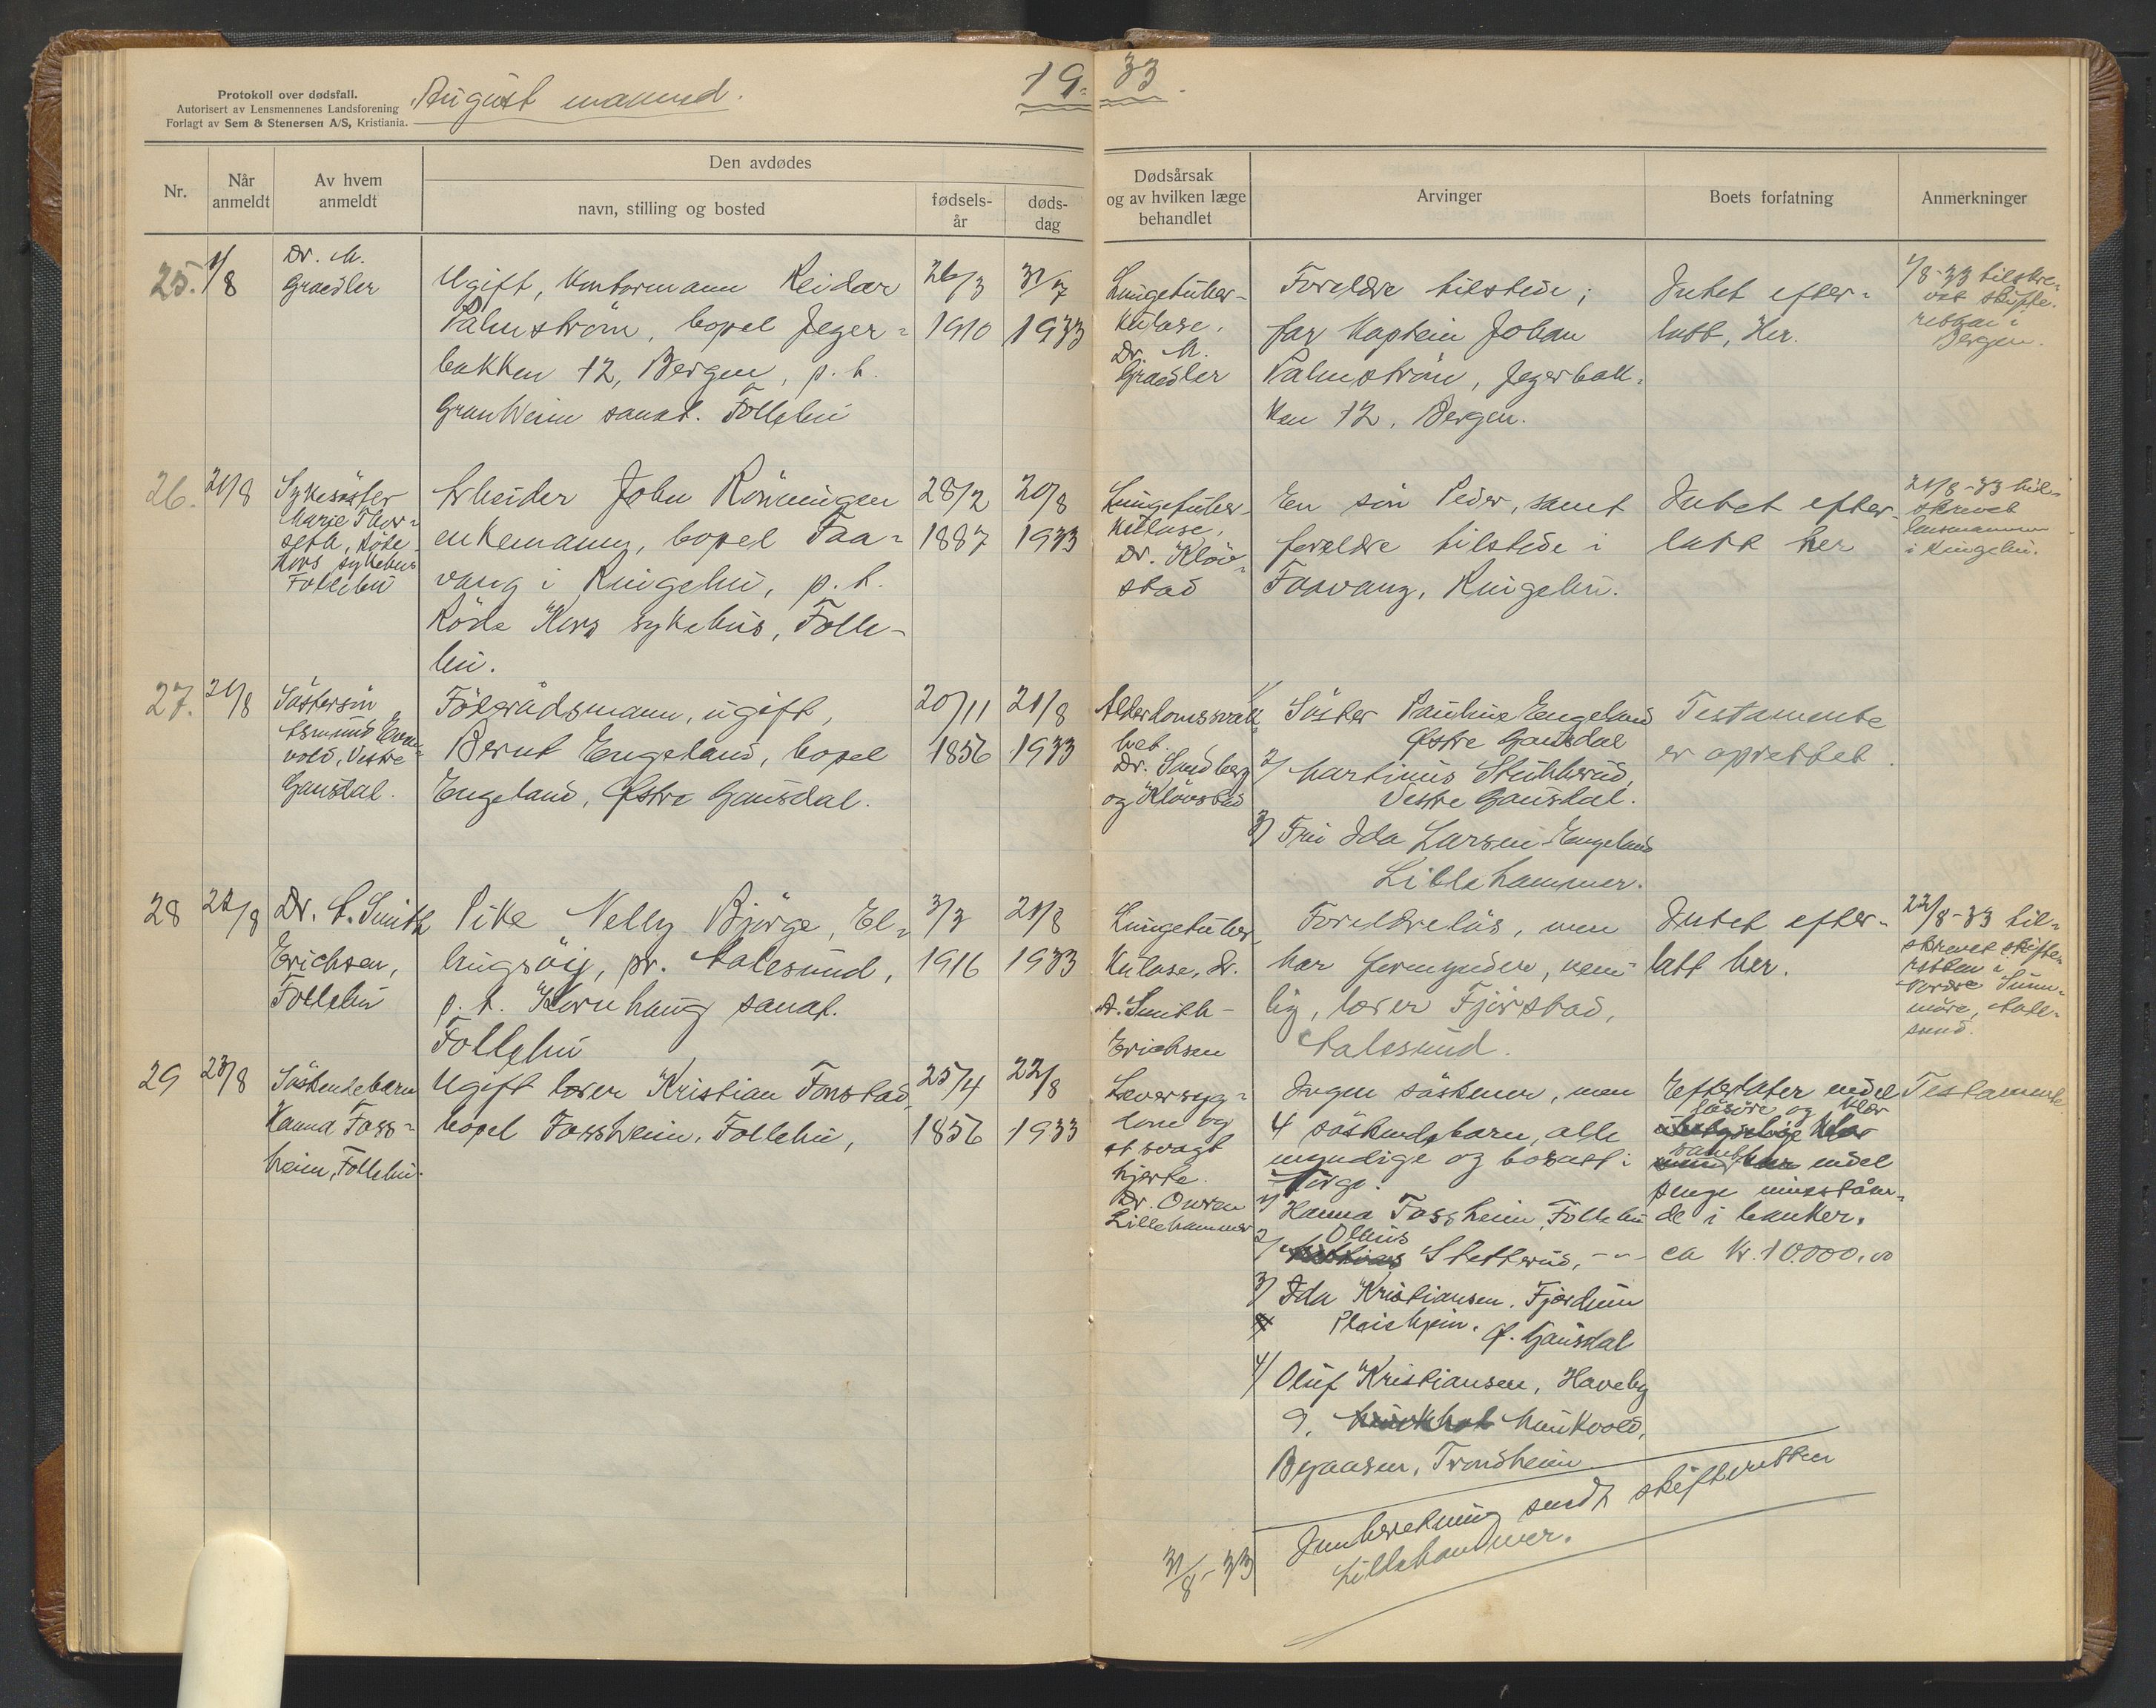 Protokoll over dødsfall.
Autorisert av Lensmennenes Landsforening
Forlagt av Sem & Stenersen A/S, Kristiania.
August maaned.
19 33.
Nr.
Når anmeldt
Av hvem anmeldt
Den avdødes
navn, stilling og bosted
fødsels-år
døds-dag
Dødsårsak
og av hvilken læge
behandlet
Arvinger
Boets forfatning
Anmerkninger
25. 1/8
Dr. M.
Graedler
Ugift, Kontormann Reidar
Palmström, bopel Jeger-
bakken 12, Bergen, p.t.
Granheim sanat. Follebu
26/3
1910
31/7
1933
Lungetuber-
kulose.
Dr. M.
Graedler
Foreldre tilstede;
far Kaptein Johan
Palmström, Jegerbak-
ken 12, Bergen.
Intet efter-
latt, her.
1/8-33 tilskre-
vet skifte-
retten i
Bergen.
26. 21/8
Sykesöster
Marie Thor-
seth, Röde
Kors sykehus
Follebu
Arbeider John Rönningen
enkemann, bopel Faa-
vang i Ringebu, p.t.
Röde Kors sykehus, Folle-
bu.
28/2
1887
20/8
1933
Lungetuber-
kulose,
Dr. Klöv-
stad
En sön Peder, samt
foreldre tilstede i
Faavang, Ringebu.
Intet efter-
latt her
21/8-33 til-
skrevet
lensmannen
i Ringebu.
27. 21/8
Söstersön
Asmund Even-
vold, Vestre
Gausdal.
Föderådsmann, ugift,
Bernt Engeland, bopel
Engeland, Østre Gausdal.
20/11
1856
21/8
1933
Alderdomssvak-
het
Dr. Sandberg
og Klövstad
1/ Söster Pauline Engeland
Østre Gausdal
2/ Martinus Stubberud,
Vestre Gausdal.
3/ Fru Ida Larsen Engeland
Lillehammer.
Testamente
er oprettet.
28 22/8
Dr. A. Smith
Erichsen,
Follebu
Pike Nelly Bjørge, El-
lingsöy, pr. Aalesund,
p.t. Kornhaug sanat.
Follebu
3/3
1916
21/8
1933
Lungetuber-
kulose, Dr.
A. Smith-
Erichsen
Foreldrelös, men
har formynder, nem-
lig, lærer Fjörstad,
Aalesund.
Intet efter-
latt her.
22/8-33 til-
skrevet skifte-
retten i
Nordre Sunn-
möre, Aale-
sund.
29 23/8
Söskendebarn
Hanna Foss-
heim, Follebu.
Ugift lærer Kristian Fonstad,
bopel Fossheim, Follebu,
25/4
1856
22/8
1933
Leversyg-
dom og
et svagt
hjerte.
Dr. Owren
Lillehammer
Ingen söskener, men
4 söskendebarn, alle
myndige og bosatt i
Norge.
1/ Hanna Fossheim, Follebu
2/ Olaus Stetterud, -"-
3/ Ida Kristiansen, Fjordheim
Ø. Gausdal
4/ Oluf Kristiansen, Haveby
9, Munkvold,
Byaasen, Trondheim
Efterlater endel
lösöre og klær
samt endel
penge inneståen-
de i banker.
ca kr. 10.000,00
Testamente.
31/8-33
Innberetning sendt skifteretten
Lillehammer.